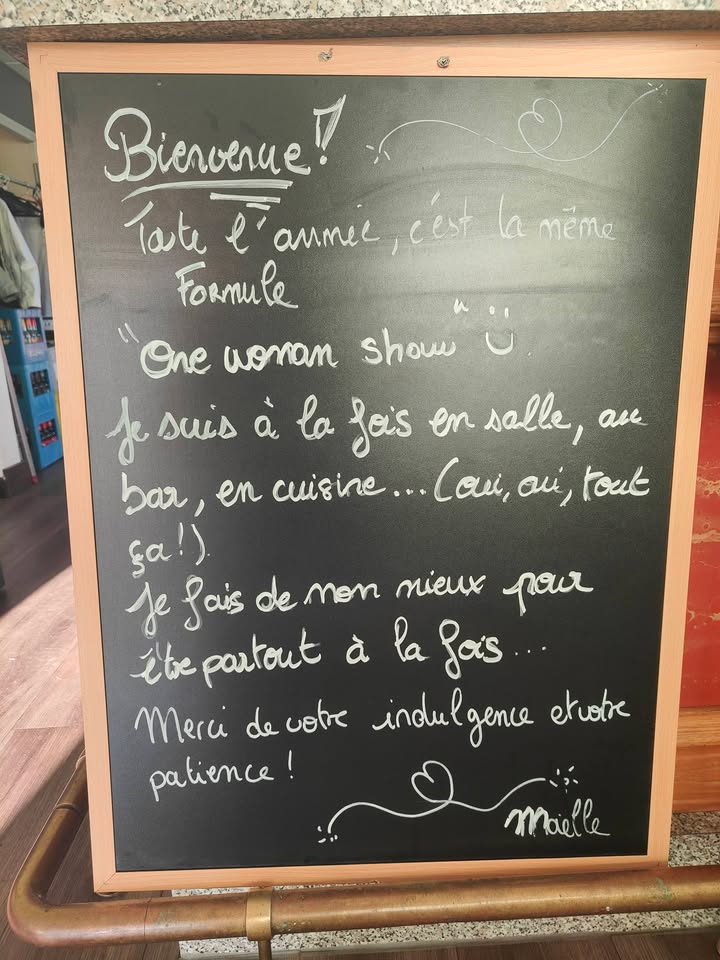 Bienvenue !
Toute l'année, c'est la même
Formule
"One woman show" :)
Je suis à la fois en salle, au
bar, en cuisine... (oui, oui, tout
ça !).
Je fais de mon mieux pour
être partout à la fois...
Merci de votre indulgence et votre
patience !
Maëlle